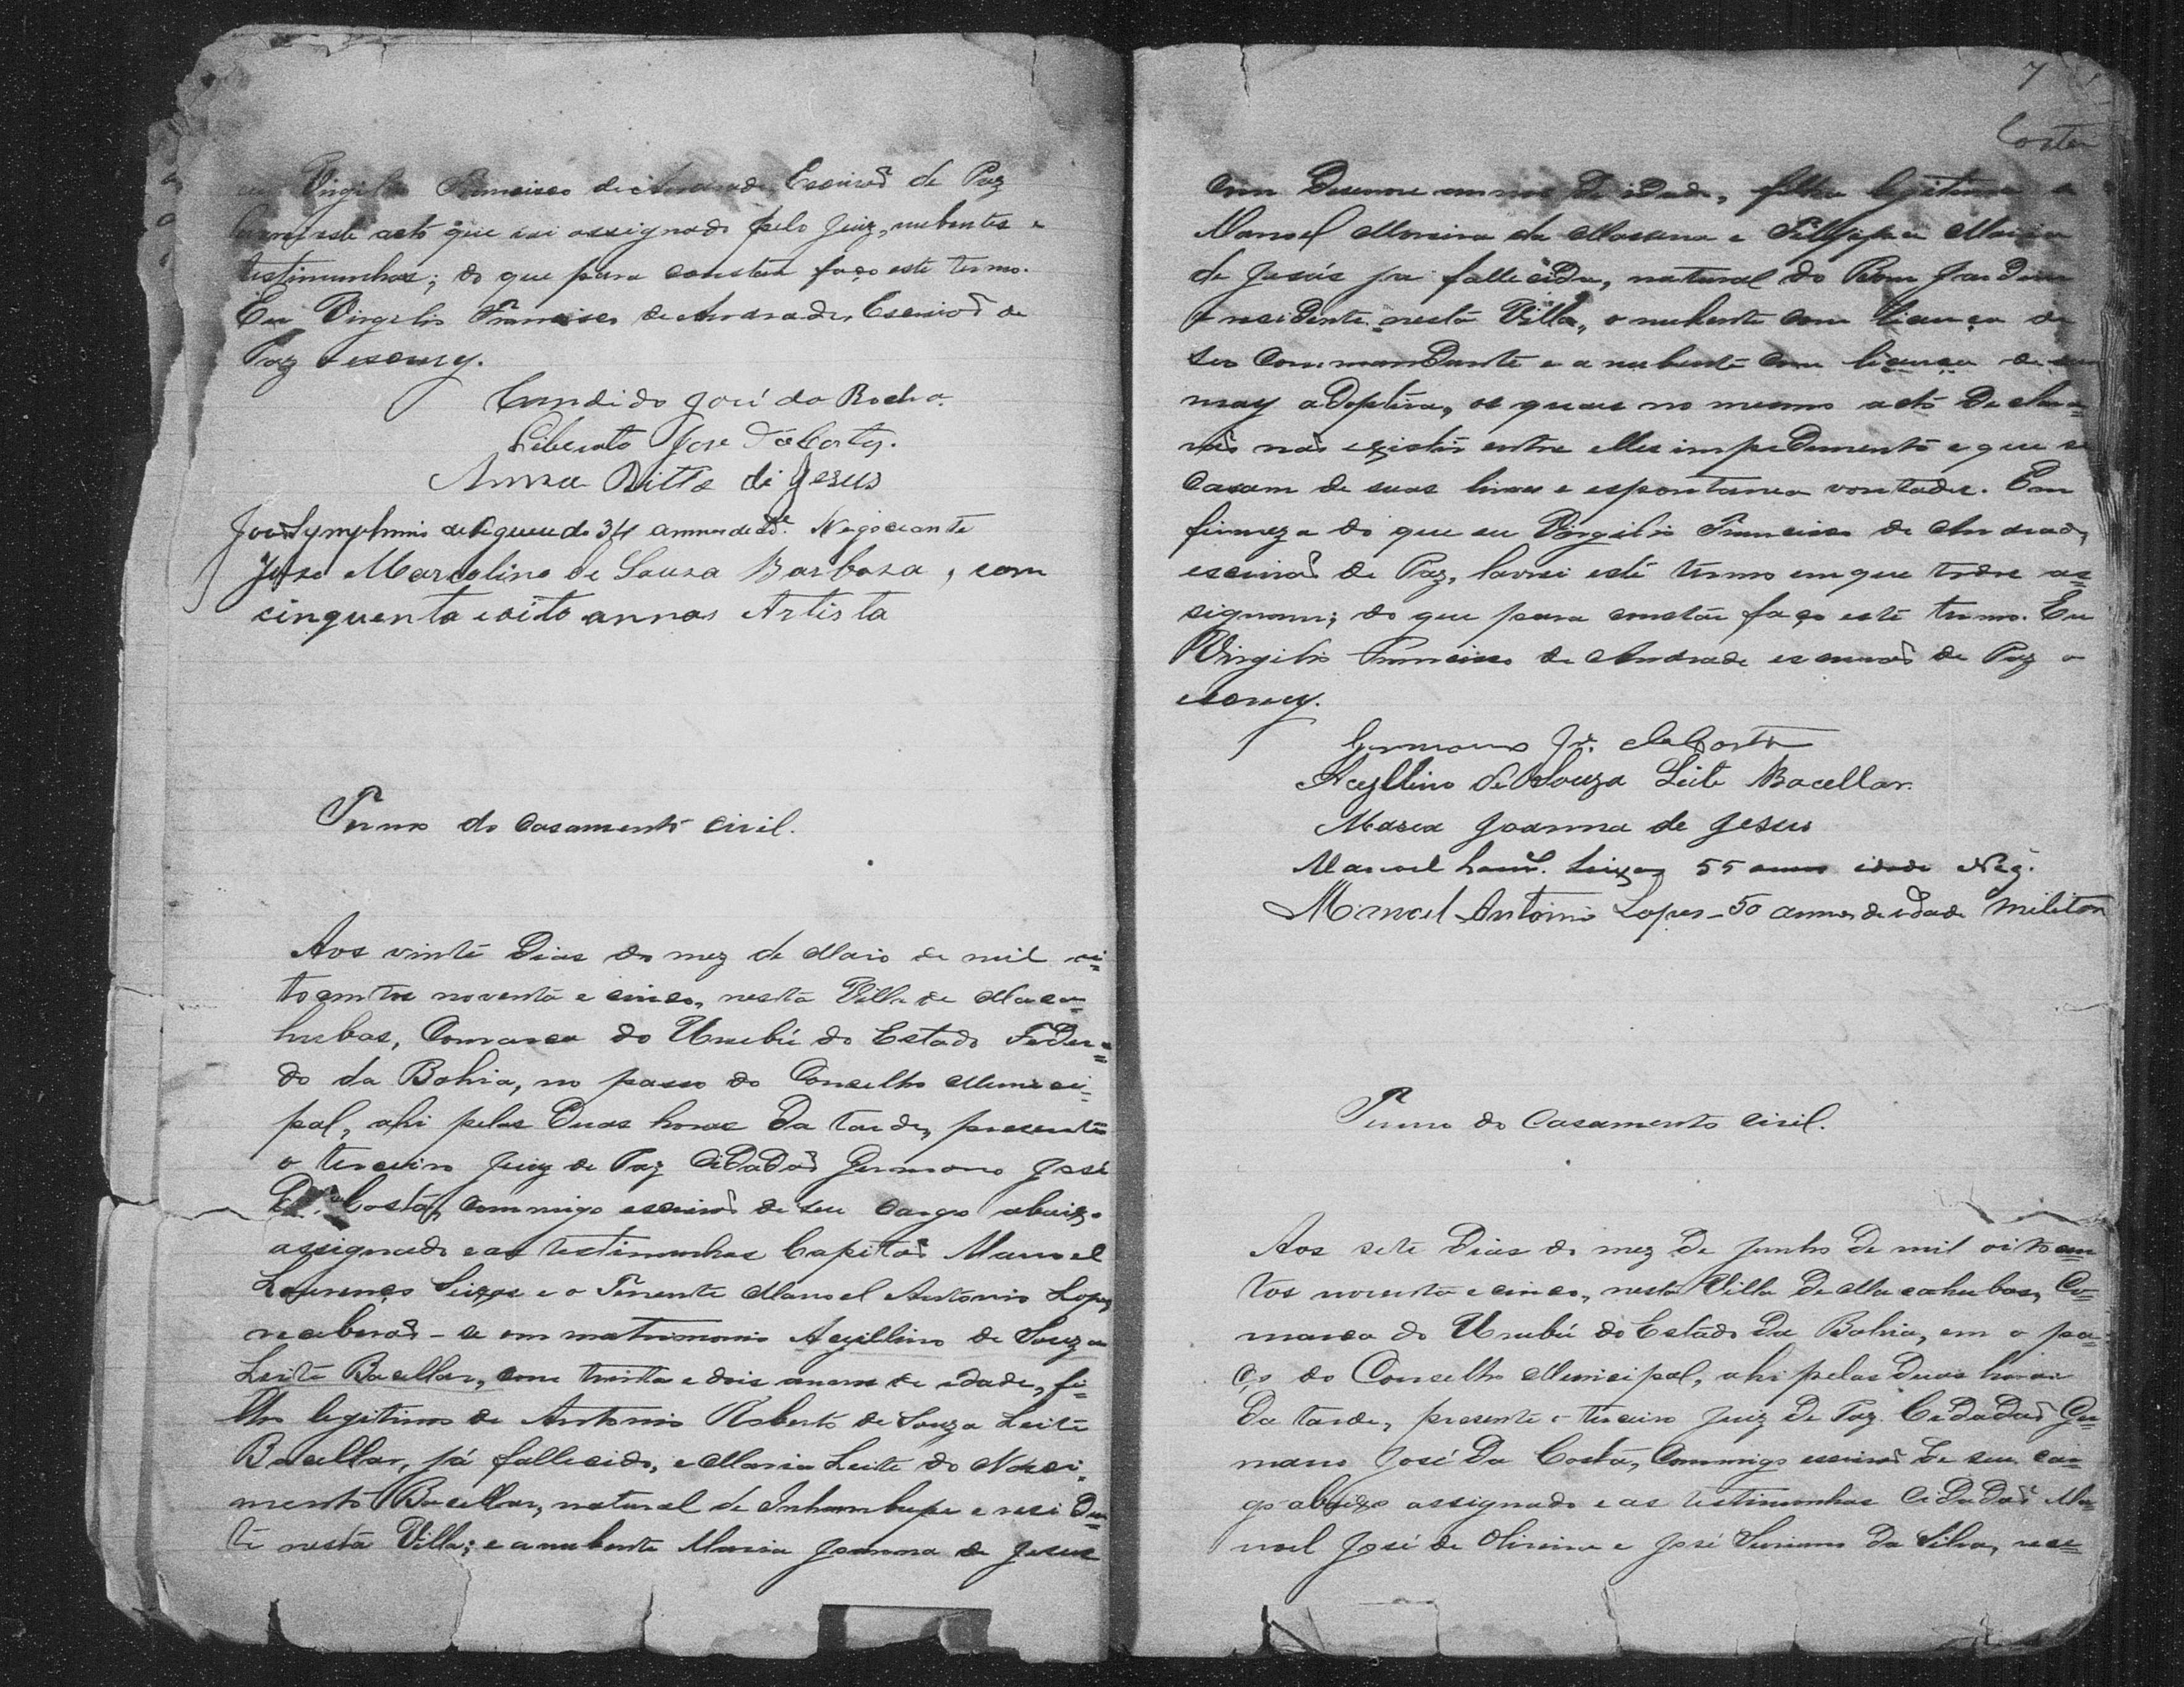 eu Virgilio Francisco de Andrade Escrivaõ de Paz
lavrei este acto que vai assignado pelo Juiz, nubentes e
testimunhas; do que para constar faço este termo.
Eu Virgilio Francisco de Andrade, Escrivaõ de
Paz o escrevy.
Candido José da Rocha
Liberato Jose da Costa.
Anna Ritta de Jesus
José Symphronio de Figueredo 34 annos de id.e Negociante
José Marcolino de Souza Barboza, com
cinquenta e oito annos Artista
Termo do Casamento Civil.
Aos vinte Dias do mez de Maio de mil oi=
tocentos noventa e cinco, nesta Villa de Maca=
hubas, Comarca do Urubú do Estado Feder=
do da Bahia, no passo do Conselho Munici=
pal, ahi pelas Duas horas Da tarde, presente
o terceiro Juiz de Paz Cidadaõ Germano José
Da Costa, commigo escrivaõ de seu cargo abaixo
assignado e as testimunhas Capitaõ Manoel
Lourenço Seixas e o Tenente Manoel Antonio Lopes
receberaõ-se em matrimonio Acyllino de Souza
Leite Bacellar, com trinta e dois annos de idade, fi=
lho legitimo de Antonio Roberto de Souza Leite
Bacellar, já fallecido, e Maria Leite do Nasci=
mento Bacellar, natural de Inhambupe e residen=
te nesta Villa; e a nubente Maria Joanna de Jesus
7
Costa
Com Desenove annos De idade, filha legitima
Manoel Moreira da e Maria
de Jesús já fallecida, natural do Bom Jardim
e residente nesta Villa, o nubente com licença de
seo Commandante e a nubente com licença de sua
may adoptiva, os quaes no mesmo acto Declara=
raõ naõ existir entre elles impedimento e que se
Casam de suas livres e espontanea vontade. Em
firmeza do que eu Virgilio Francisco de Andrade,
escrivaõ de Paz, lavrei este termo em que todos as=
signam; do que para constar faço este termo. Eu
Virgilio Francisco de Andrade escrivaõ de Paz o
escrevy.
Germano Jé. da Costa
Acyllino de Souza Leite Bacellar.
Maria Joanna de Jesus
Manoel Lourço. Seixas 55 annos idade Neg.
Manoel Antonio Lopes - 50 annos de idade militar
Termo do Casamento Civil.
Aos sete Dias do mez De Junho De mil oitocen=
tos noventa e cinco, nesta Villa De Macahubas, Co=
marca do Urubú do Estado Da Bahia, em o pa=
ço do Conselho Municipal, ahi pelas Duas horas
Da tarde, presente o terceiro Juiz De Paz Cidadaõ Ger=
mano José Da Costa, Commigo escrivaõ De seu car=
go abaixo assignado e as testimunhas Cidadaõ Ma=
noel José de Oliveira e José Da Silva, rece=